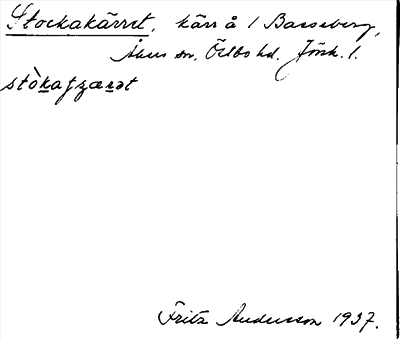 Stockakärret, kärr å / Basseberg,
Åkers sn. Östbo hd. Jönk. l.
stòkaꞔæret
Fritz Andersson 1937.